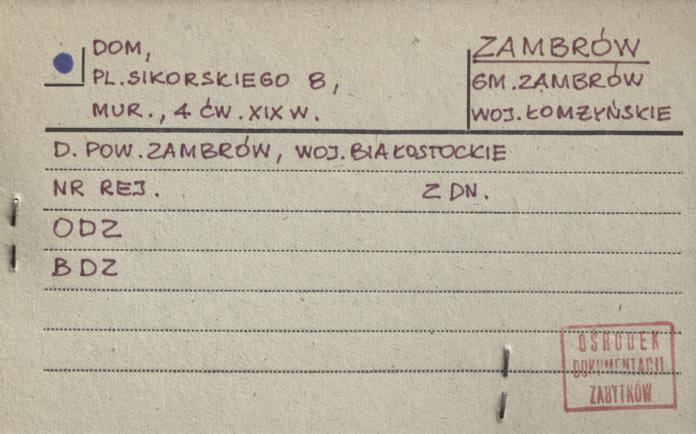 DOM,
PL.SIKORSKIEGO 8,
MUR., 4 ĆW. XIX W.
ZAMBRÓW
GM. ZAMBRÓW
WOJ. ŁOMŻYŃSKIE
D. POW. ZAMBRÓW, WOJ. BIAŁOSTOCKIE
NR REJ. Z DN.
ODZ
BDZ
OŚRODEK
DOKUMENTACJI
ZABYTKÓW